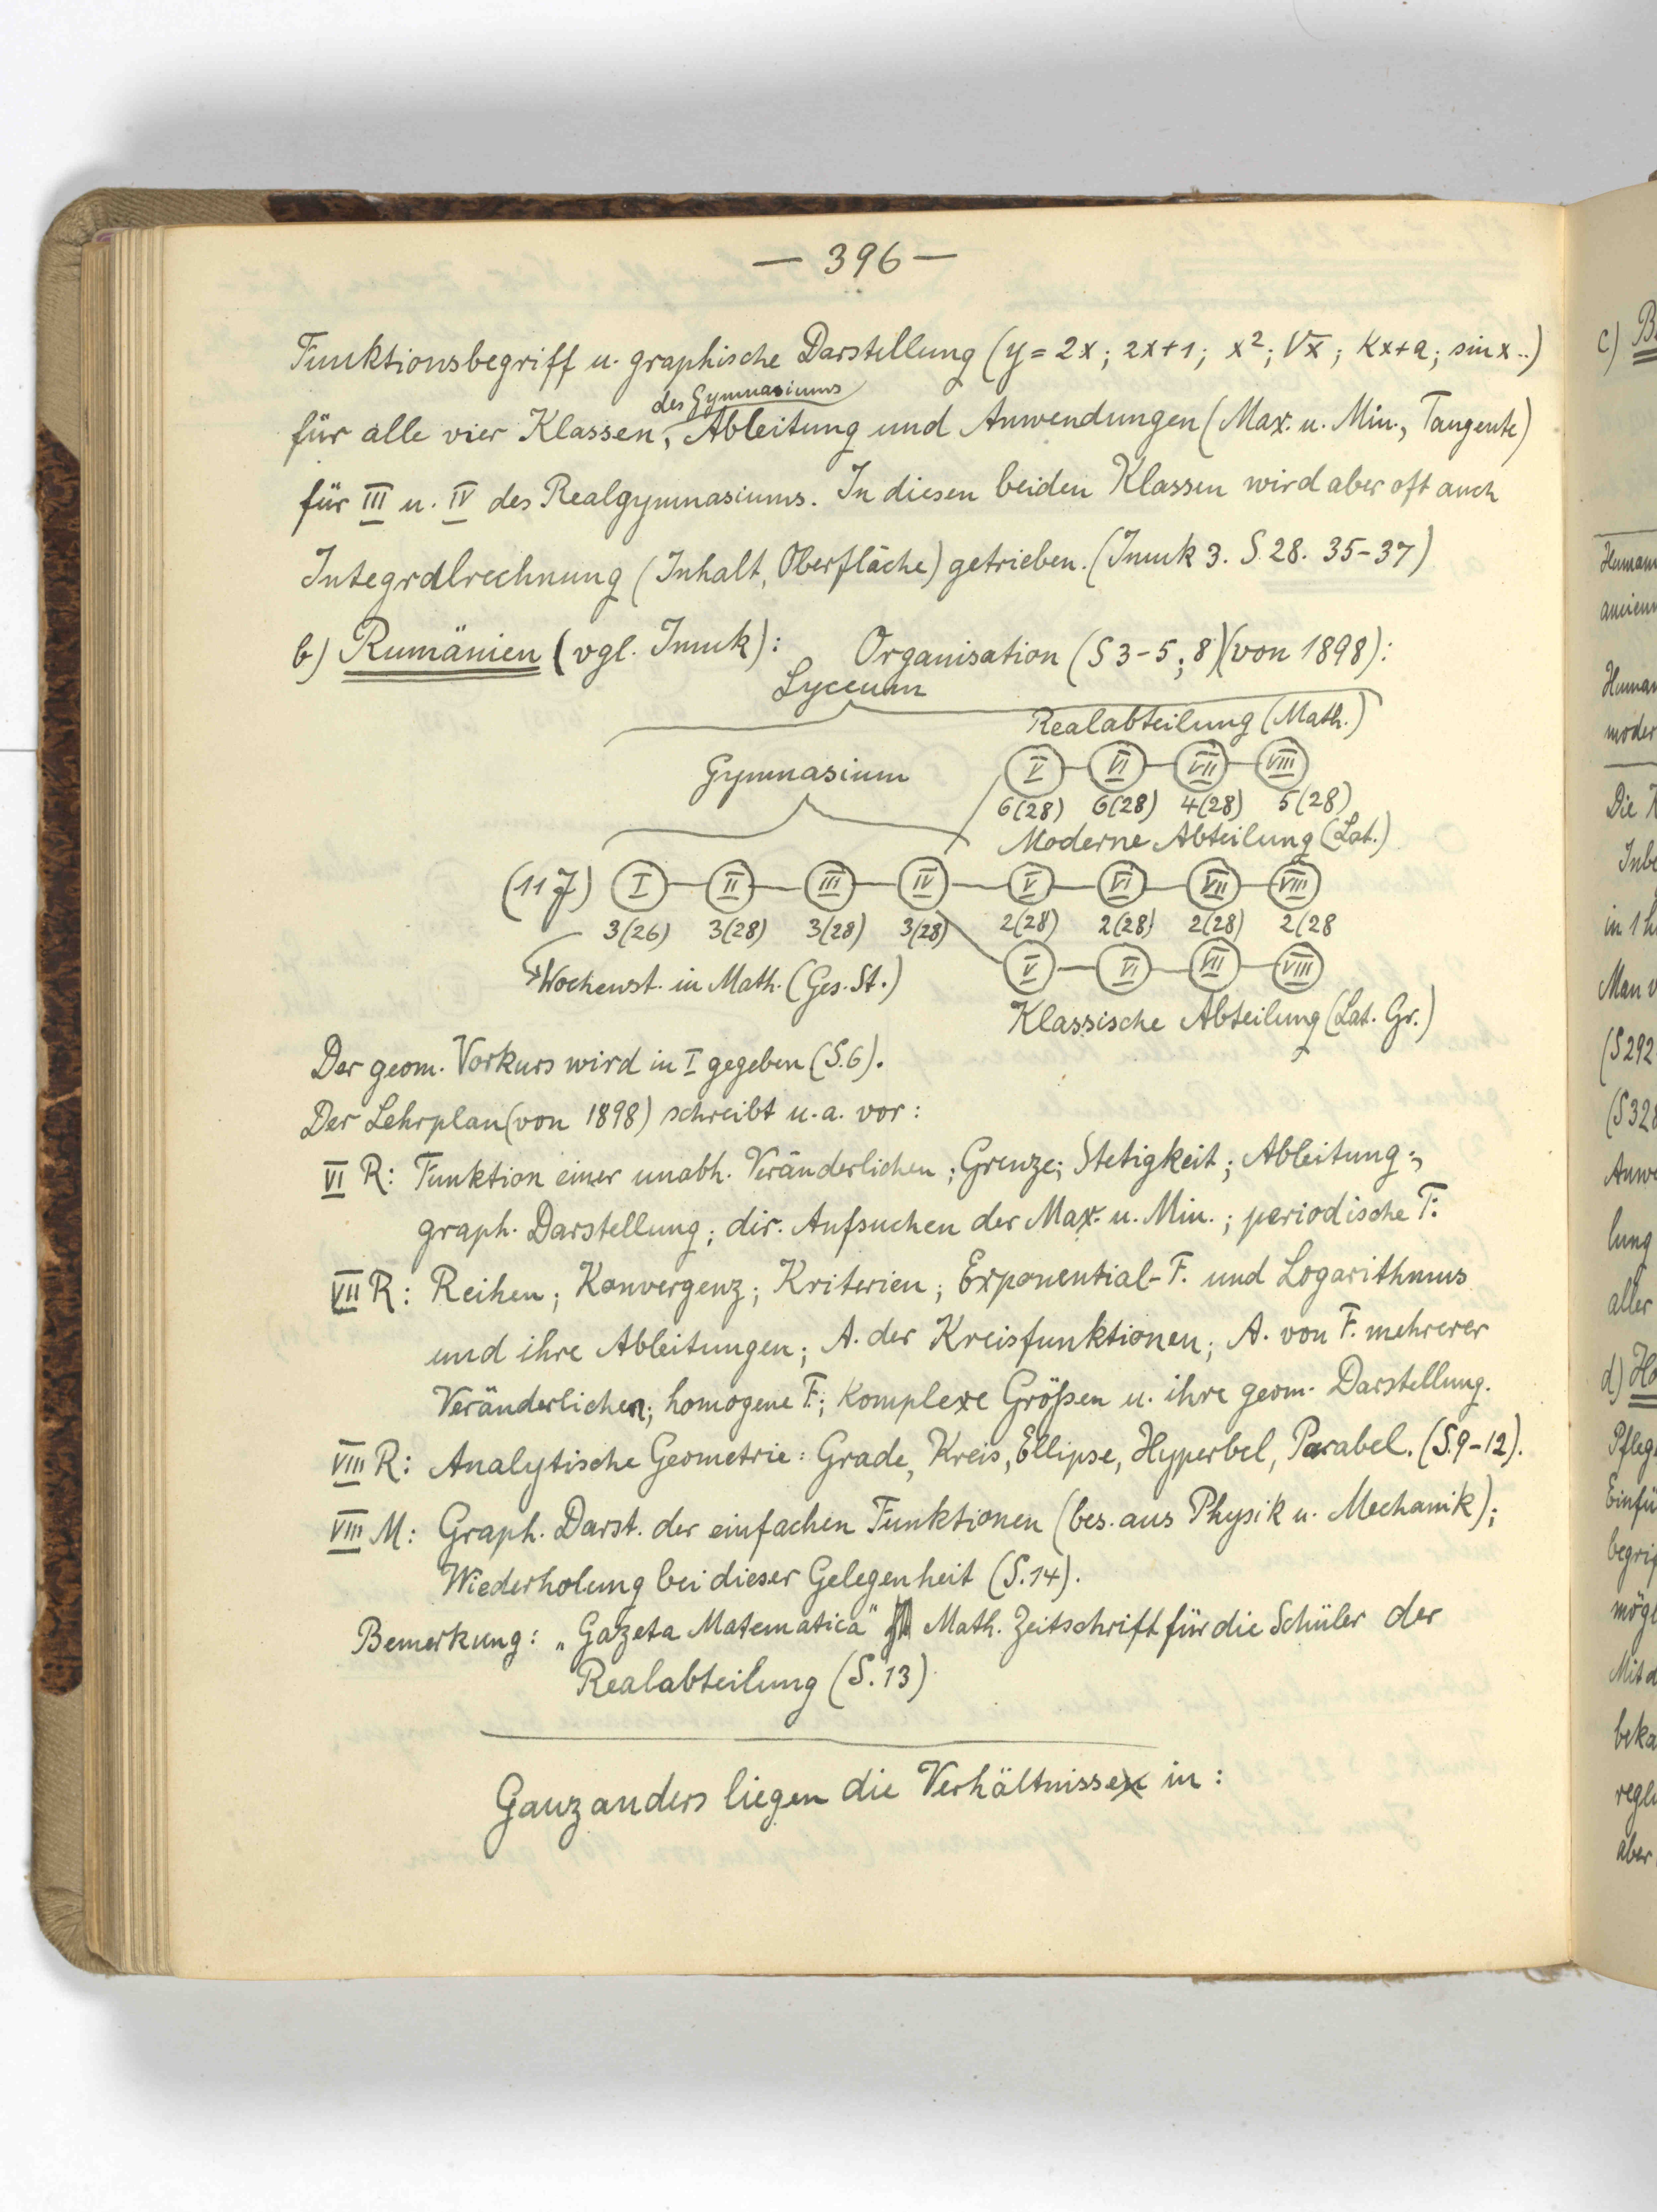 — 396 —
Funktionsbegriff u. graphische Darstellung (y = 2x; 2x+1; x²; √x; kx+a; sin x..)
des Gymnasiums
für alle vier Klassen, Ableitung und Anwendungen (Max. u. Min., Tangente)
für III u. IV des Realgymnasiums. In diesen beiden Klassen wird aber oft auch
Integralrechnung (Inhalt, Oberfläche) getrieben. (Imuk 3. S. 28. 35-37)
b) Rumänien (vgl. Imuk): Organisation (S 3-5; 8)(von 1898):
Lyceum
Realabteilung (Math.)
Gymnasium
V VI VII VIII
6(28) 6(28) 4(28) 5(28)
Moderne Abteilung (Lat.)
(11 J) I II III IV V VI VII VIII
3(26) 3(28) 3(28) 3(28) 2(28) 2(28) 2(28) 2(28
Wochenst. in Math. (Ges. St.) V VI VII VIII
Klassische Abteilung (Lat. Gr.)
Der geom. Vorkurs wird in I gegeben (S. 6).
Der Lehrplan (von 1898) schreibt u. a. vor:
VI R: Funktion einer unabh. Veränderlichen; Grenze; Stetigkeit; Ableitung;
graph. Darstellung; dir. Aufsuchen der Max. u. Min.; periodische F.
VII R: Reihen; Konvergenz; Kriterien; Exponential-F. und Logarithmus
und ihre Ableitungen; A. der Kreisfunktionen; A. von F. mehrerer
Veränderlichen; homogene F.; Komplexe Größen u. ihre geom. Darstellung.
VIII R: Analytische Geometrie: Grade, Kreis, Ellipse, Hyperbel, Parabel. (S. 9-12).
VIII M: Graph. Darst. der einfachen Funktionen (bes. aus Physik u. Mechanik);
Wiederholung bei dieser Gelegenheit (S. 14).
Bemerkung: „Gazeta Matematica" Math. Zeitschrift für die Schüler der
Realabteilung (S. 13)
Ganz anders liegen die Verhältnisse in:
c)
d)